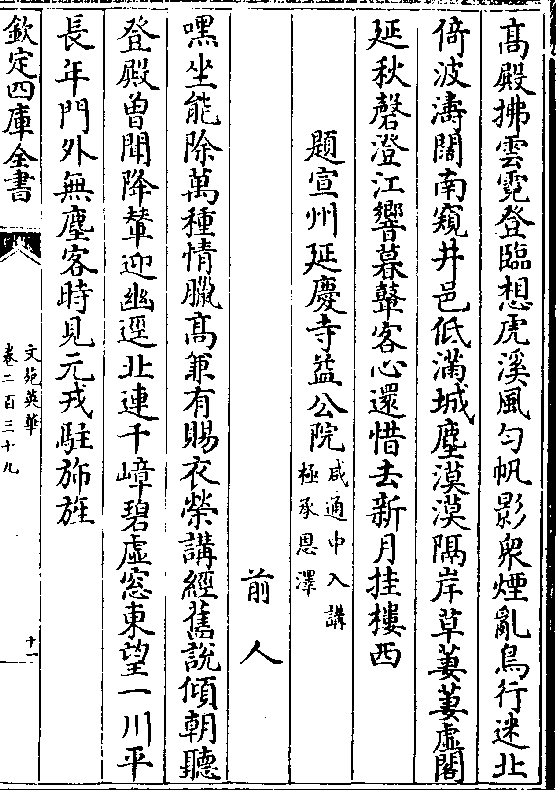 髙殿拂雲霓登臨想虎溪風勻帆影衆煙亂鳥行迷北
倚波濤闊南窺井邑低滿城塵漠漠隔岸草萋萋虛閣
延秋磬澄江響暮鼙客心還惜去新月挂樓西
題宣州延慶寺益公院咸通中入講極承恩澤
前人
嘿坐能除萬種情臘髙兼有賜衣榮講經舊說傾朝聽
登殿曽聞降輦迎幽逕北連千嶂碧虛窓東望一川平
長年門外無塵客時見元戎駐斾旌
欽定四庫全書
文苑英華
卷二百三十九
十一